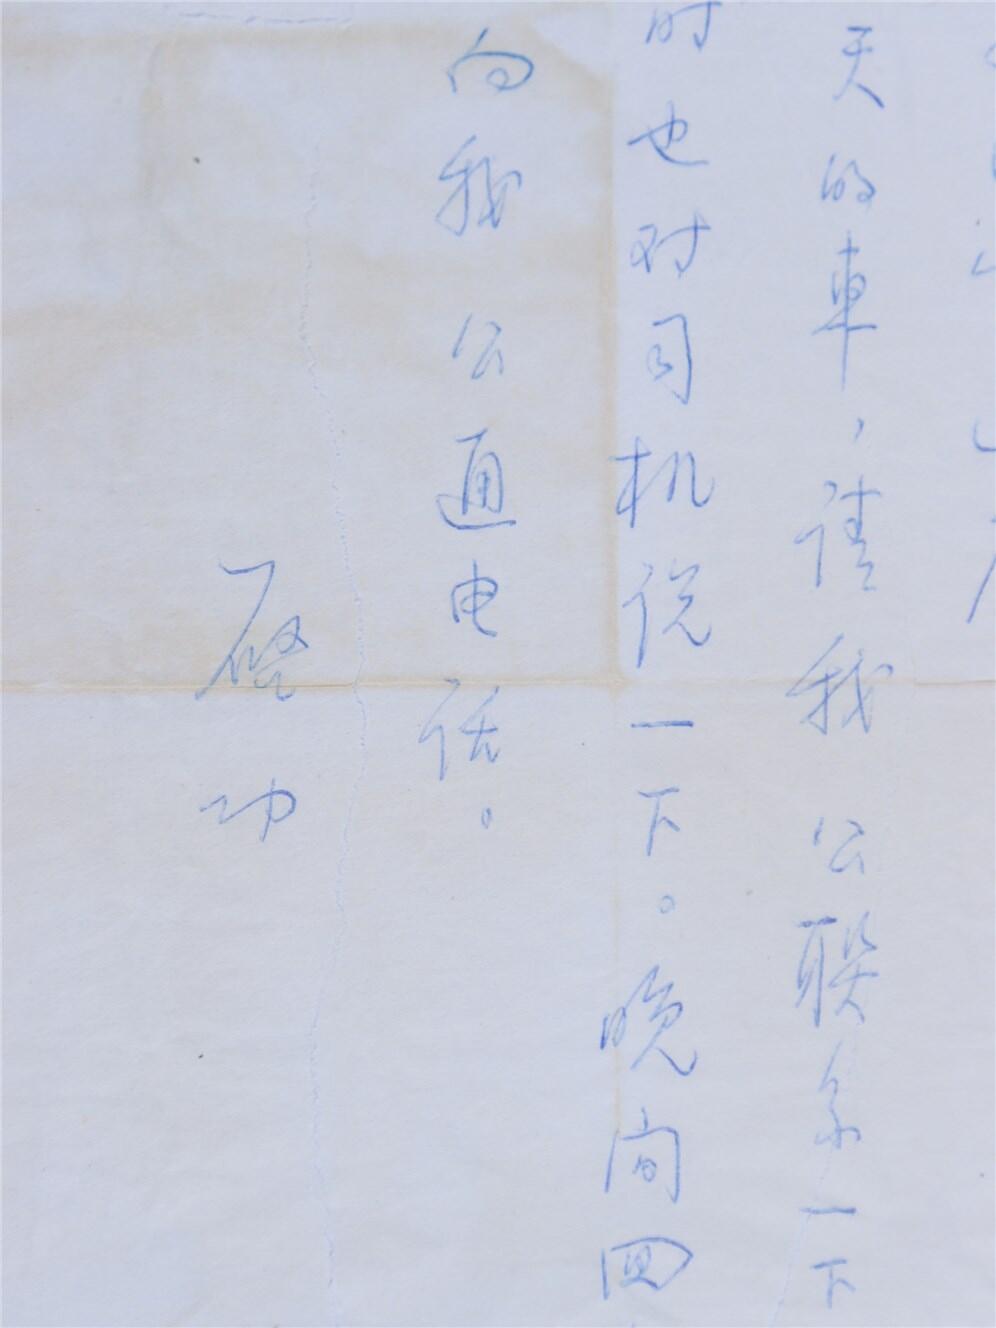 天的車，请我公联系一下
时也对司机说一下。晚间
向我公通电话。
启功